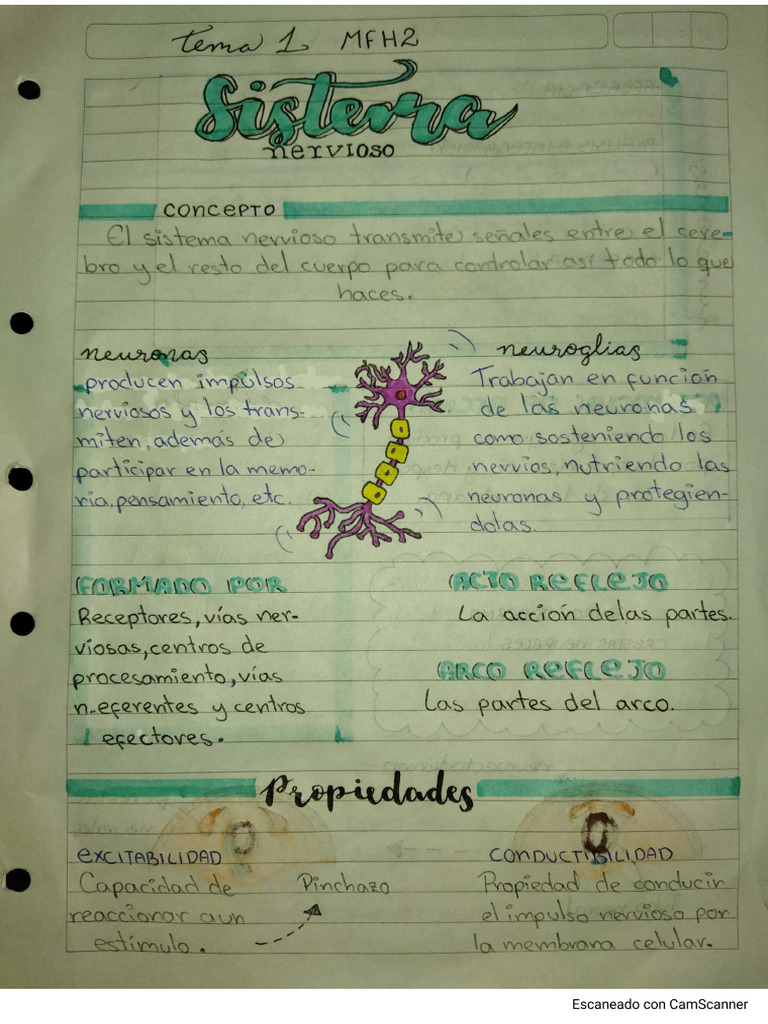 Tema 1 MFH2
Sistema
nervioso
concepto
El sistema nervioso transmite señales entre el cere-
bro y el resto del cuerpo para controlar así todo lo que
haces.
neuronas
producen impulsos
nerviosos y los trans-
miten, además de
participar en la memo-
ria, pensamiento, etc.
neuroglias
Trabajan en función
de las neuronas
como sosteniendo los
nervios, nutriendo las
neuronas y protegien-
dolas.
FORMADO POR
Receptores, vías ner-
viosas, centros de
procesamiento, vías
n. eferentes y centros
efectores.
ACTO REFLEJO
La acción delas partes.
ARCO REFLEJO
Las partes del arco.
Propiedades
EXCITABILIDAD
Capacidad de
reaccionar aun
estímulo.
Pinchazo
CONDUCTIBILIDAD
Propiedad de conducir
el impulso nervioso por
la membrana celular.
Escaneado con CamScanner